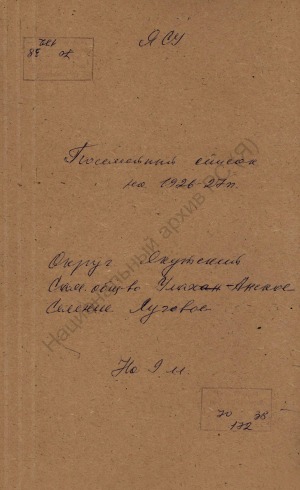 70 38
172
ЯСУ
Посемейный список
на 1926-27 г.
Округ Якутский
Сел. общество Улахан-Анское
Селение Луговое
На 9 л.
70 38
172
Национальный архив РС(Я)